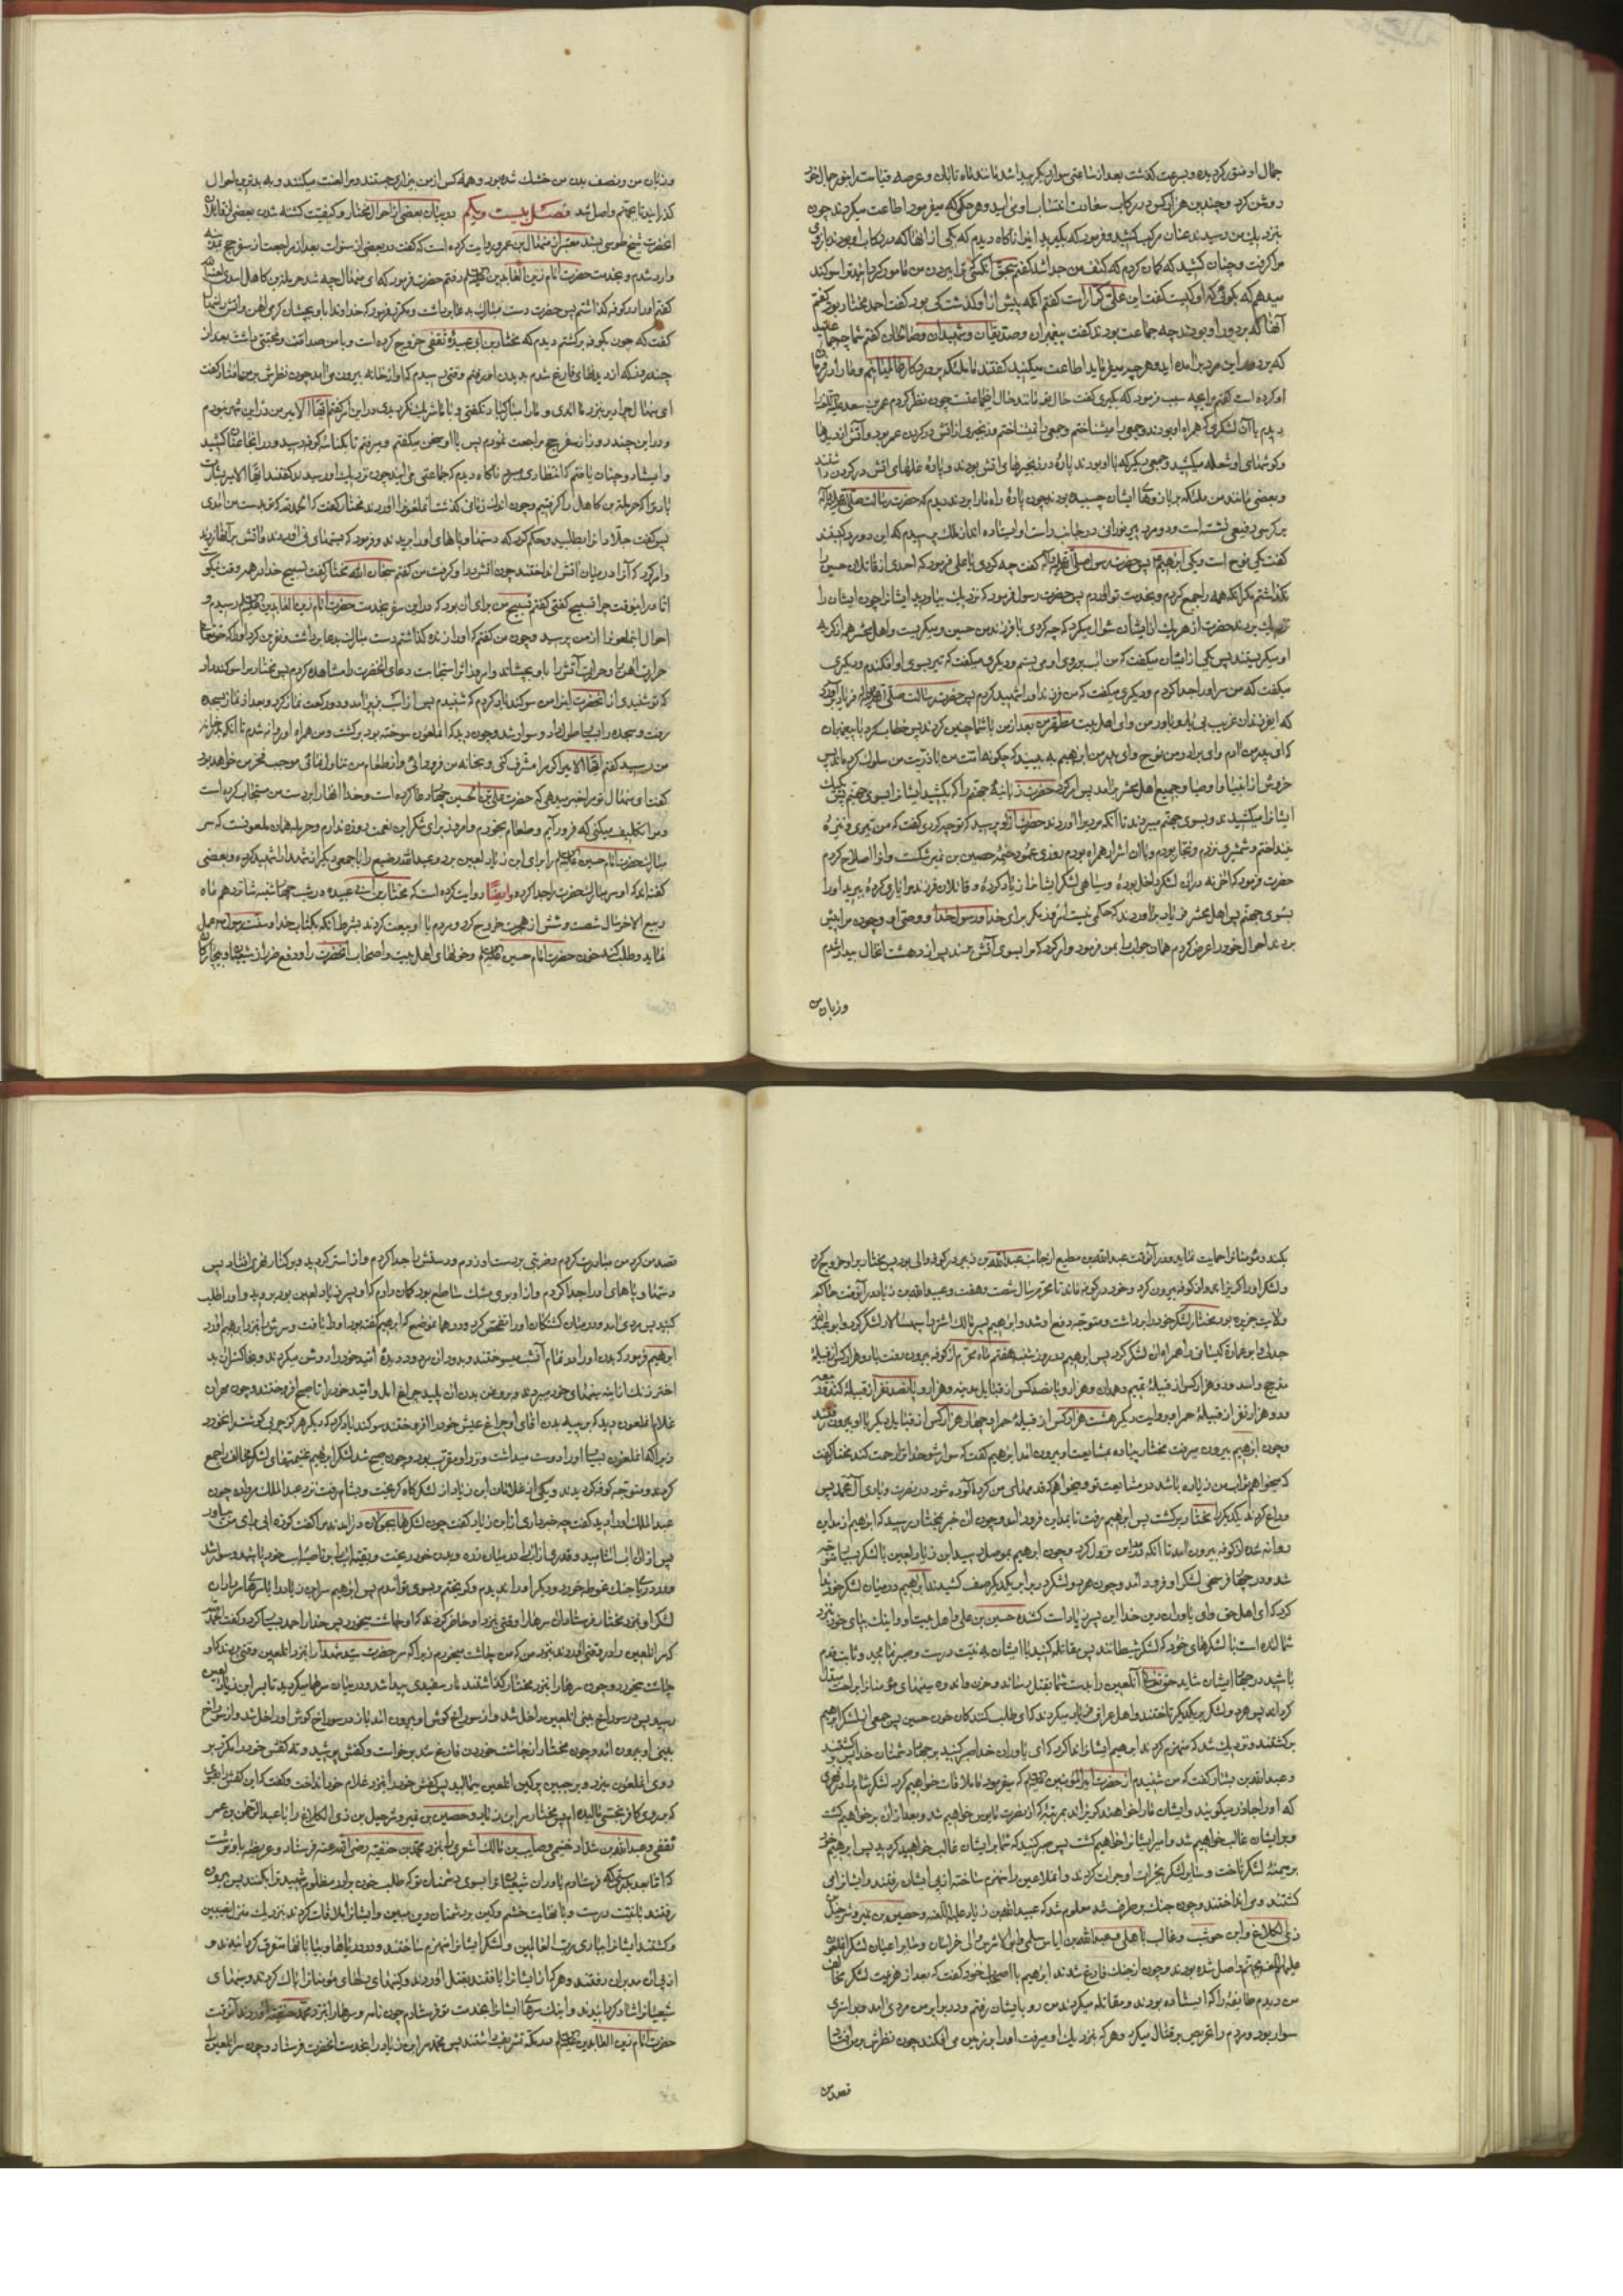 جمال او شق کردیده و بسرعت کذشت بعد از ساعتی سوار دیکر پیدا شد مانند ماه تابان و عرصه قیامت را بنور جمال خود
روشن کرد و چندین هزار کس در رکاب سعادت انتساب او می آمدند و هر حکم که میفرمود اطاعت میکردند چون
بنزدیك من رسید عنان مرکب کشید و فرمود که بکیرید اینرا ناکاه دیدم که یکی از آنها که در رکاب او بودند بازوی
مرا کرفت و چنان کشید که کمان کردم که کتف من جدا شد کفتم بحق آنکس که ترا ببردن من مامور کردانید ترا سوکند
میدهم که بکوئی که او کیست کفت این علی کرار است کفتم آنکه پیش از او کذشت کی بود کفت احمد مختار بود کفتم
آنها که بر دور او بودند چه جماعت بودند کفت پیغمبران و صدیقان و شهیدان و صالحان کفتم شما چه جماعتید
که بر دور این مرد بر آمده اید و هر چه میفرماید اطاعت میکنید کفتند ما ملئکه پروردکار عالمیانیم و ما را در فرمان
او کرده است کفتم مرا بچه سبب فرمود که بکیری کفت حال تو مانند حال آنجماعتست چون نظر کردم عمر بن سعد علیه اللعنه را
دیدم با آن لشکری که همراه او بودند و جمعی را میشناختم و جمعی را نمیشناختم و زنجیری از آتش در کردن عمر بود و آتش از دیدها
و کوشهای او شعله میکشید و جمعی دیکر که با او بودند پارهٔ در زنجیرهای آتش بودند و پارهٔ غلهای آتش در کردن داشتند
و بعضی مانند من ملئکه بر بازوهای ایشان چسبیده بودند چون پارهٔ راه ما را بردند دیدم که حضرت رسالت صلی الله علیه و آله
بر کرسی رفیعی نشسته است و دو مرد پیر نورانی در جانب راست او ایستاده اند از ملك پرسیدم که این دو مرد کیستند
کفت یکی نوح است و یکی ابراهیم پس حضرت رسول صلی الله علیه و آله کفت چه کردی یا علی فرمود که احدی از قاتلان حسین را
نکذاشتم مکر آنکه همه را جمع کردم و بخدمت تو آوردم پس حضرت رسول فرمود که نزدیك بیاورید ایشانرا چون ایشان را
نزدیك بردند حضرت از هر یك از ایشان سؤال میکرد که چه کردی با فرزند من حسین و میکریست و اهل محشر همه از کریهٔ
او میکریستند پس یکی از ایشان میکفت که من آب بر روی او می بستم و دیکری میکفت که تیر بسوی او افکندم و دیکری
میکفت که من سر او را جدا کردم و دیکری میکفت که من فرزند او را شهید کردم پس حضرت رسالت صلی الله علیه و آله فریاد برآورد
که ای فرزندان غریب بی یار و یاور من و ای اهل بیت مطهر من بعد از من با شما چنین کردند پس خطاب کرد با پیغمبران
که ای پدر من آدم و ای برادر من نوح و ای پدر من ابراهیم به بینید که چکونه امت من با ذریت من سلوك کرده اند پس
خروش از انبیا و اوصیا و جمیع اهل محشر برآمد پس امر کرد حضرت زبانیهٔ جهنم را که بکشید ایشانرا بسوی جهنم پس یك یك
ایشانرا میکشیدند و بسوی جهنم میبردند تا آنکه مردیرا آوردند حضرت از او پرسید که تو چه کردی کفت که من تیری و نیزهٔ
نینداختم و شمشیری نزدم و نجار بودم و با آن اشرار همراه بودم روزی عمود خیمهٔ حصین بن نمیر شکست و آنرا اصلاح کردم
حضرت فرمود که آخر نه در آن لشکر داخل بودهٔ و سیاهی لشکر ایشانرا زیاد کردهٔ و قاتلان فرزند مرا یاری کردهٔ ببرید او را
بسوی جهنم پس اهل محشر فریاد برآوردند که حکمی نیست امروز مکر برای خدا و رسول خدا و وصی او و چون مرا پیش
بردند احوال خود را عرض کردم همان جواب را بمن فرمود و امر کرد که مرا بسوی آتش برند پس از دهشت آنحال بیدار شدم
و زبان من
و زبان من و نصف بدن من خشك شده بود و همه کس از من بیزاری جستند و مرا لعنت میکنند و به بدترین احوال
کذرانید تا بجهنم واصل شد فصل بیست و یکم در بیان بعضی از احوال مختار و کیفیت کشته شدن بعضی از قاتلان
آنحضرت شیخ طوسی بسند معتبر از منهال بن عمرو روایت کرده است که کفت در بعضی از سنوات بعد از مراجعت از سفر حج بمدینه
وارد شدم و بخدمت حضرت امام زین العابدین علیه السلام رفتم حضرت فرمود که ای منهال چه شد حرملة بن کاهل اسدی لعنه الله
کفتم او را در کوفه زنده کذاشتم پس حضرت دست مبارك بدعا برداشت و مکرر فرمود که خداوندا باو بچشان کرمی آهن و آتش را
کفت که چون بکوفه برکشتم دیدم که مختار بن ابی عبیدهٔ ثقفی خروج کرده است و با من صداقت و محبتی داشت بعد از
چند روز که از دیدنهای مردم فارغ شدم بدیدن او رفتم وقتی رسیدم که او از خانه بیرون می آمد چون نظرش بر من افتاد کفت
ای منهال چرا دیر بنزد ما آمدی و ما را مبارکباد نکفتی و با ما شریك نکردیدی در این امر کفتم ایها الامیر من در این شهر نبودم
و در این چند روز از سفر حج مراجعت نمودم پس با او سخن میکفتم و میرفتم تا بکناسهٔ کوفه رسید و در آنجا عنان کشید
و ایستاد و چنان یافتم که انتظاری میبرد ناکاه دیدم که جماعتی می آیند چون نزدیك او رسیدند کفتند ایها الامیر بشارت
باد ترا که حرملة بن کاهل را کرفتیم و چون اندك زمانی کذشت آنملعون را آوردند مختار کفت که الحمد لله که تو بدست من آمدی
پس کفت جلادانرا بطلبید و حکم کرد که دستها و پاهای او را بریدند و فرمود که پشتهای نی آوردند و آتش بر آنها زدند
و امر کرد که آنرا در میان آتش انداختند چون آتش در او کرفت من کفتم سبحان الله مختار کفت تسبیح خدا در همه وقت نیکوست
اما در اینوقت چرا تسبیح کفتی کفتم تسبیح من برای آن بود که در این سفر بخدمت حضرت امام زین العابدین علیه السلام رسیدم و
احوال اینملعونرا از من پرسید و چون من کفتم که او را زنده کذاشتم دست مبارك بدعا برداشت و نفرین کرد او را که حق تعالی
حرارت آهن را و حرارت آتش را باو بچشاند و امروز اثر استجابت دعای آنحضرت را مشاهده کردم پس مختار مرا سوکند داد
که تو شنیدی از آنحضرت اینرا من سوکند یاد کردم که شنیدم پس از اسب بزیر آمد و دو رکعت نماز کرد و بعد از نماز بسجده
رفت و سجده را بسیار طول داد و سوار شد و چون دید که آنملعون سوخته بود برکشت و من همراه او روانه شدم تا آنکه بدر خانهٔ
من رسید کفتم ایها الامیر اکر مرا مشرف کنی و بخانهٔ من فرود آئی و از طعام من تناول نمائی موجب فخر من خواهد بود
کفت ای منهال تو مرا خبر میدهی که حضرت علی بن الحسین چهار دعا کرده است و خدا آنها را بر دست من مستجاب کرده است
و مرا تکلیف میکنی که فرود آیم و طعام بخورم و امروز برای شکر این نعمت روزه ندارم و حرمله همان ملعونست که سر
مبارك حضرت امام حسین علیه السلام را برای ابن زیاد لعین برد و عبدالله رضیع را با جمعی دیکر از شهدا را شهید کرد و بعضی
کفته اند که او سر مبارك حضرت را جدا کرد و ایضاً روایت کرده است که مختار بن ابی عبیده در شب چهارشنبه شانزدهم ماه
ربیع الآخر سال شصت و شش از هجرت خروج کرد و مردم با او بیعت کردند بشرط آنکه بکتاب خدا و سنت رسول عمل
نماید و طلب کند خون حضرت امام حسین علیه السلام و خونهای اهل بیت و اصحاب آنحضرت را و دفع ضرر از شیعیان و بیچارکان
بکند و مؤمنانرا حمایت نماید و در آنوقت عبدالله بن مطیع از جانب عبدالله بن زبیر در کوفه والی بود پس مختار بر او خروج کرد
و لشکر او را کریزانید و از کوفه بیرون کرد و خود در کوفه ماند تا محرم سال شصت و هفت و عبیدالله بن زیاد در آنوقت حاکم
ولایت جزیره بود مختار لشکر خود را برداشت و متوجه دفع او شد و ابراهیم پسر مالك اشتر را سپهسالار لشکر کرد و ابوعبدالله
جدلی و ابوعمارهٔ کیسانی را همراه آن لشکر کرد پس ابراهیم در روز شنبه هفتم ماه محرم از کوفه بیرون رفت با دو هزار کس از قبیلهٔ
مذحج و اسد و دو هزار کس از قبیلهٔ تمیم و همدان و هزار و پانصد کس از قبایل مدینه و هزار و پانصد نفر از قبیلهٔ کنده و ربیعه
و دو هزار نفر از قبیلهٔ حمرا و بروایت دیکر هشت هزار کس از قبیلهٔ حمرا و چهار هزار کس از قبایل دیکر با او بیرون رفتند
و چون ابراهیم بیرون میرفت مختار پیاده بمشایعت او بیرون آمد ابراهیم کفت که سوار شو خدا ترا رحمت کند مختار کفت
که میخواهم ثواب من زیاده باشد در مشایعت تو و میخواهم که قدمهای من کرد آلوده شود در نصرت و یاری آل محمد پس
وداع کردند یکدیکر را و مختار برکشت پس ابراهیم رفت تا بمداین فرود آمد و چون این خبر بمختار رسید که ابراهیم از مداین
روانه شده از کوفه بیرون آمد تا آنکه در مداین نزول کرد و چون ابراهیم بموصل رسید ابن زیاد لعین با لشکر بسیار متوجه
شد و در چهار فرسخی لشکر او فرود آمد و چون هر دو لشکر در برابر یکدیکر صف کشیدند ابراهیم در میان لشکر خود ندا
کرد که ای اهل حق و ای یاوران دین خدا این پسر زیاد است کشندهٔ حسین بن علی و اهل بیت او و اینك بپای خود بنزد
شما آمده است با لشکرهای خود که لشکر شیطانند پس مقاتله کنید با ایشان به نیت درست و صبر نمائید و ثابت قدم
باشید در جهاد ایشان شاید حق تعالی آنلعین را بدست شما بقتل رساند و حزن و اندوه سینهای مؤمنانرا براحت مبدل
کرداند پس هر دو لشکر بر یکدیکر تاختند و اهل عراق فریاد میکردند که ای طلب کنندکان خون حسین پس جمعی از لشکر ابراهیم
برکشتند و نزدیك شد که منهزم کردند ابراهیم ایشانرا ندا کرد که ای یاوران خدا صبر کنید بر جهاد دشمنان خدا پس برکشتند
و عبدالله بن یسار کفت که من شنیدم از حضرت امیرالمؤمنین علیه السلام که میفرمود ما ملاقات خواهیم کرد لشکر شام را در نهری
که او را خازر میکویند و ایشان ما را خواهند کریزانید بمرتبهٔ که از نصرت مأیوس خواهیم شد و بعد از آن بر خواهیم کشت
و بر ایشان غالب خواهیم شد و امیر ایشانرا خواهیم کشت پس صبر کنید که شما بر ایشان غالب خواهید کردید پس ابراهیم خود
بر میمنهٔ لشکر تاخت و سایر لشکر بجرأت او جرأت کردند و آنملاعین را منهزم ساختند از پی ایشان رفتند و ایشانرا می
کشتند و می انداختند و چون جنك بر طرف شد معلوم شد که عبیدالله بن زیاد علیه اللعنه و حصین بن نمیر و شرحبیل
ذی الکلاع و ابن حوشب و غالب باهلی و عبدالله بن ایاس سلمی و ابوالاشرس والی خراسان و سایر اعیان لشکر آنملعون
علیهم اللعنه بجهنم واصل شده بودند و چون از جنك فارغ شدند ابراهیم با اصحاب خود کفت که بعد از هزیمت لشکر مخالف
من دیدم طایفهٔ را که ایستاده بودند و مقاتله میکردند من رو بایشان رفتم و در برابر من مردی آمد و بر استری
سوار بود و مردم را تحریص بر قتال میکرد و هر که بنزدیك او میرفت او را بر زمین می افکند چون نظرش بر من افتاد
قصد من
قصد من کرد من مبادرت کردم و ضربتی بر دست او زدم و دستش را جدا کردم و از استر کردید و بر کنار نهر افتاد پس
دستها و پاهای او را جدا کردم و از او بوی مشك ساطع بود کمان دارم که او پسر زیاد لعین بود بروید و او را طلب
کنید پس مردی آمد و در میان کشتکان او را تفحص کرد و در همان موضع که ابراهیم کفته بود او را یافت و سرش را بنزد ابراهیم آورد
ابراهیم فرمود که بدن او را در تمام آنشب میسوختند و بدود آن مردود دیدهٔ امید خود را روشن میکردند و بخاکستر آن بد
اختر زنك از آینهٔ سینهای خود میبردند و بروغن بدن آن پلید چراغ امل و امید خود را تا صبح افروختند و چون مهران
غلام آنملعون دید که به پیه بدن آقای او چراغ عیش خود را افروختند سوکند یاد کرد که دیکر هرکز چربی کوشت را نخورد
زیرا که آنملعون بسیار او را دوست میداشت و نزد او مقرب بود و چون صبح شد لشکر ابراهیم غنیمتهای لشکر مخالف را جمع
کردند و متوجه کوفه کردیدند و یکی از غلامان ابن زیاد از لشکرکاه کریخت و بشام رفت نزد عبدالملك مروان چون
عبدالملك او را دید کفت چه خبر داری از ابن زیاد کفت چون لشکرها بجولان در آمدند مرا کفت کوزهٔ آبی برای من بیاور
پس از آن آب آشامید و قدری از آنرا در میان زره و بدن خود ریخت و بقیهٔ آنرا بر ناصیهٔ اسب خود پاشید و سوار شد
و در دریای جنك غوطه خورد و دیکر او را ندیدم و کریختم و بسوی تو آمدم پس ابراهیم سر ابن زیاد را با سرهای سرداران
لشکر او بنزد مختار فرستاد آن سرها را وقتی بنزد او حاضر کردند که او چاشت میخورد پس خدا را حمد بسیار کرد و کفت الحمد لله
که سر آنلعین را در وقتی آوردند بنزد من که من چاشت میخورم زیرا که سر حضرت سید شهدا را بنزد آنلعین وقتی بردند که او
چاشت میخورد و چون سرها را بنزد مختار کذاشتند مار سفیدی پیدا شد و در میان سرها میکردید تا بسر ابن زیاد لعین
رسید پس در سوراخ بینی آنلعین داخل شد و از سوراخ کوش او بیرون آمد باز در سوراخ کوش او داخل شد و از سوراخ
بینی او بیرون آمد و چون مختار از چاشت خوردن فارغ شد برخاست و کفش پوشید و ته کفش خود را مکرر بر
روی آنملعون میزد و بر جبین پر کین آنلعین میمالید پس کفش خود را بنزد غلام خود انداخت و کفت که این کفش را بشوی
که بر روی کافر نجسی مالیده ام پس مختار سر ابن زیاد و حصین بن نمیر و شرحبیل بن ذی الکلاع را با عبدالرحمن بن عمیر
ثقفی و عبدالله بن شداد خثعمی و صایب بن مالك اشعری بنزد محمد بن حنفیه رضی الله عنه فرستاد و عریضه باو نوشت
که اما بعد بدرستیکه فرستادم یاوران و شیعیان ترا بسوی دشمنان تو که طلب خون برادر مظلوم شهید ترا بکنند پس بیرون
رفتند با نیت درست و با نهایت خشم و کین بر دشمنان دین مبین و ایشانرا ملاقات کردند بنزدیك منزل نصیبین
و کشتند ایشانرا بیاری رب العالمین و لشکر ایشانرا منهزم ساختند و در دریاها و بیابانها متفرق کردانیدند و
از پی آن مدبران رفتند و هر کجا ایشانرا یافتند بقتل آوردند و کینهای دلهای مؤمنانرا پاك کردند و سینهای
شیعیانرا شاد کردانیدند و اینك سرهای ایشانرا بخدمت تو فرستادم چون نامه و سرها را بنزد محمد حنفیه آوردند در آنوقت
حضرت امام زین العابدین علیه السلام در مکه تشریف داشتند پس محمد سر ابن زیاد را بخدمت آنحضرت فرستاد و چون سر آنلعین را